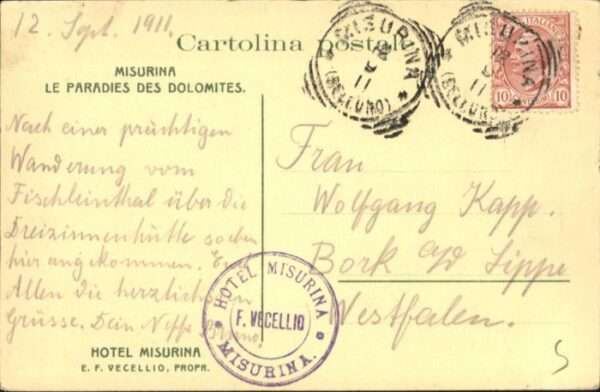 12. Sept. 1911.
Cartolina postale
MISURINA
LE PARADIES DES DOLOMITES.
Nach einer prächtigen
Wanderung vom
Fischleinthal über die
Dreizinnenhütte soeben
hier angekommen.
Allen die herzlichsten
Grüsse. Dein Neffe
HOTEL MISURINA
E. F. VECELLIO, PROPR.
MISURINA
(BELLUNO)
MISURINA
(BELLUNO)
10
10
Frau
Wolfgang Kapp.
Bork a/d Lippe
Westfalen.
HOTEL MISURINA
F. VECELLIO
MISURINA.
5